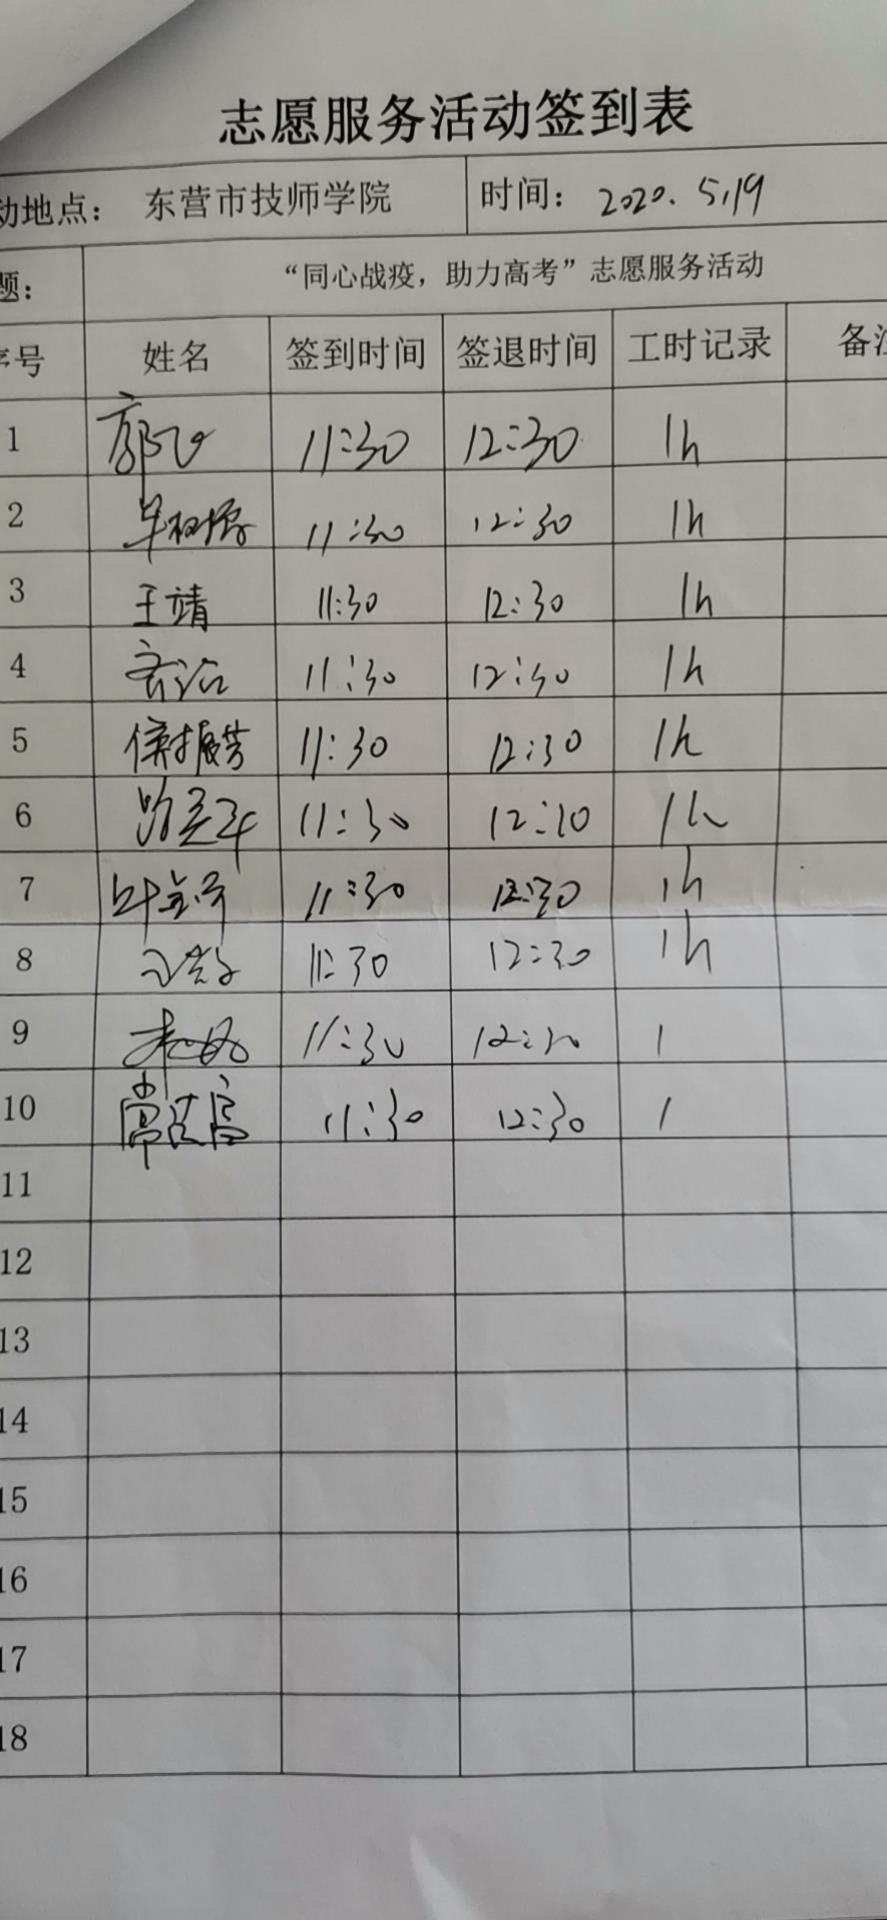 志愿服务活动签到表
动地点： 东营市技师学院 时间： 2020.5.19
题： “同心战疫，助力高考”志愿服务活动
序号 姓名 签到时间 签退时间 工时记录 备注
1 郭 11:30 12:30 1h
2 11:30 12:30 1h
3 王靖 11:30 12:30 1h
4 11:30 12:30 1h
5 侯振芳 11:30 12:30 1h
6 11:30 1h
7 11:30 12:30 1h
8 11:30 12:30 1h
9 11:30 12:30 1
10 常 11:30 12:30 1
11
12
13
14
15
16
17
18